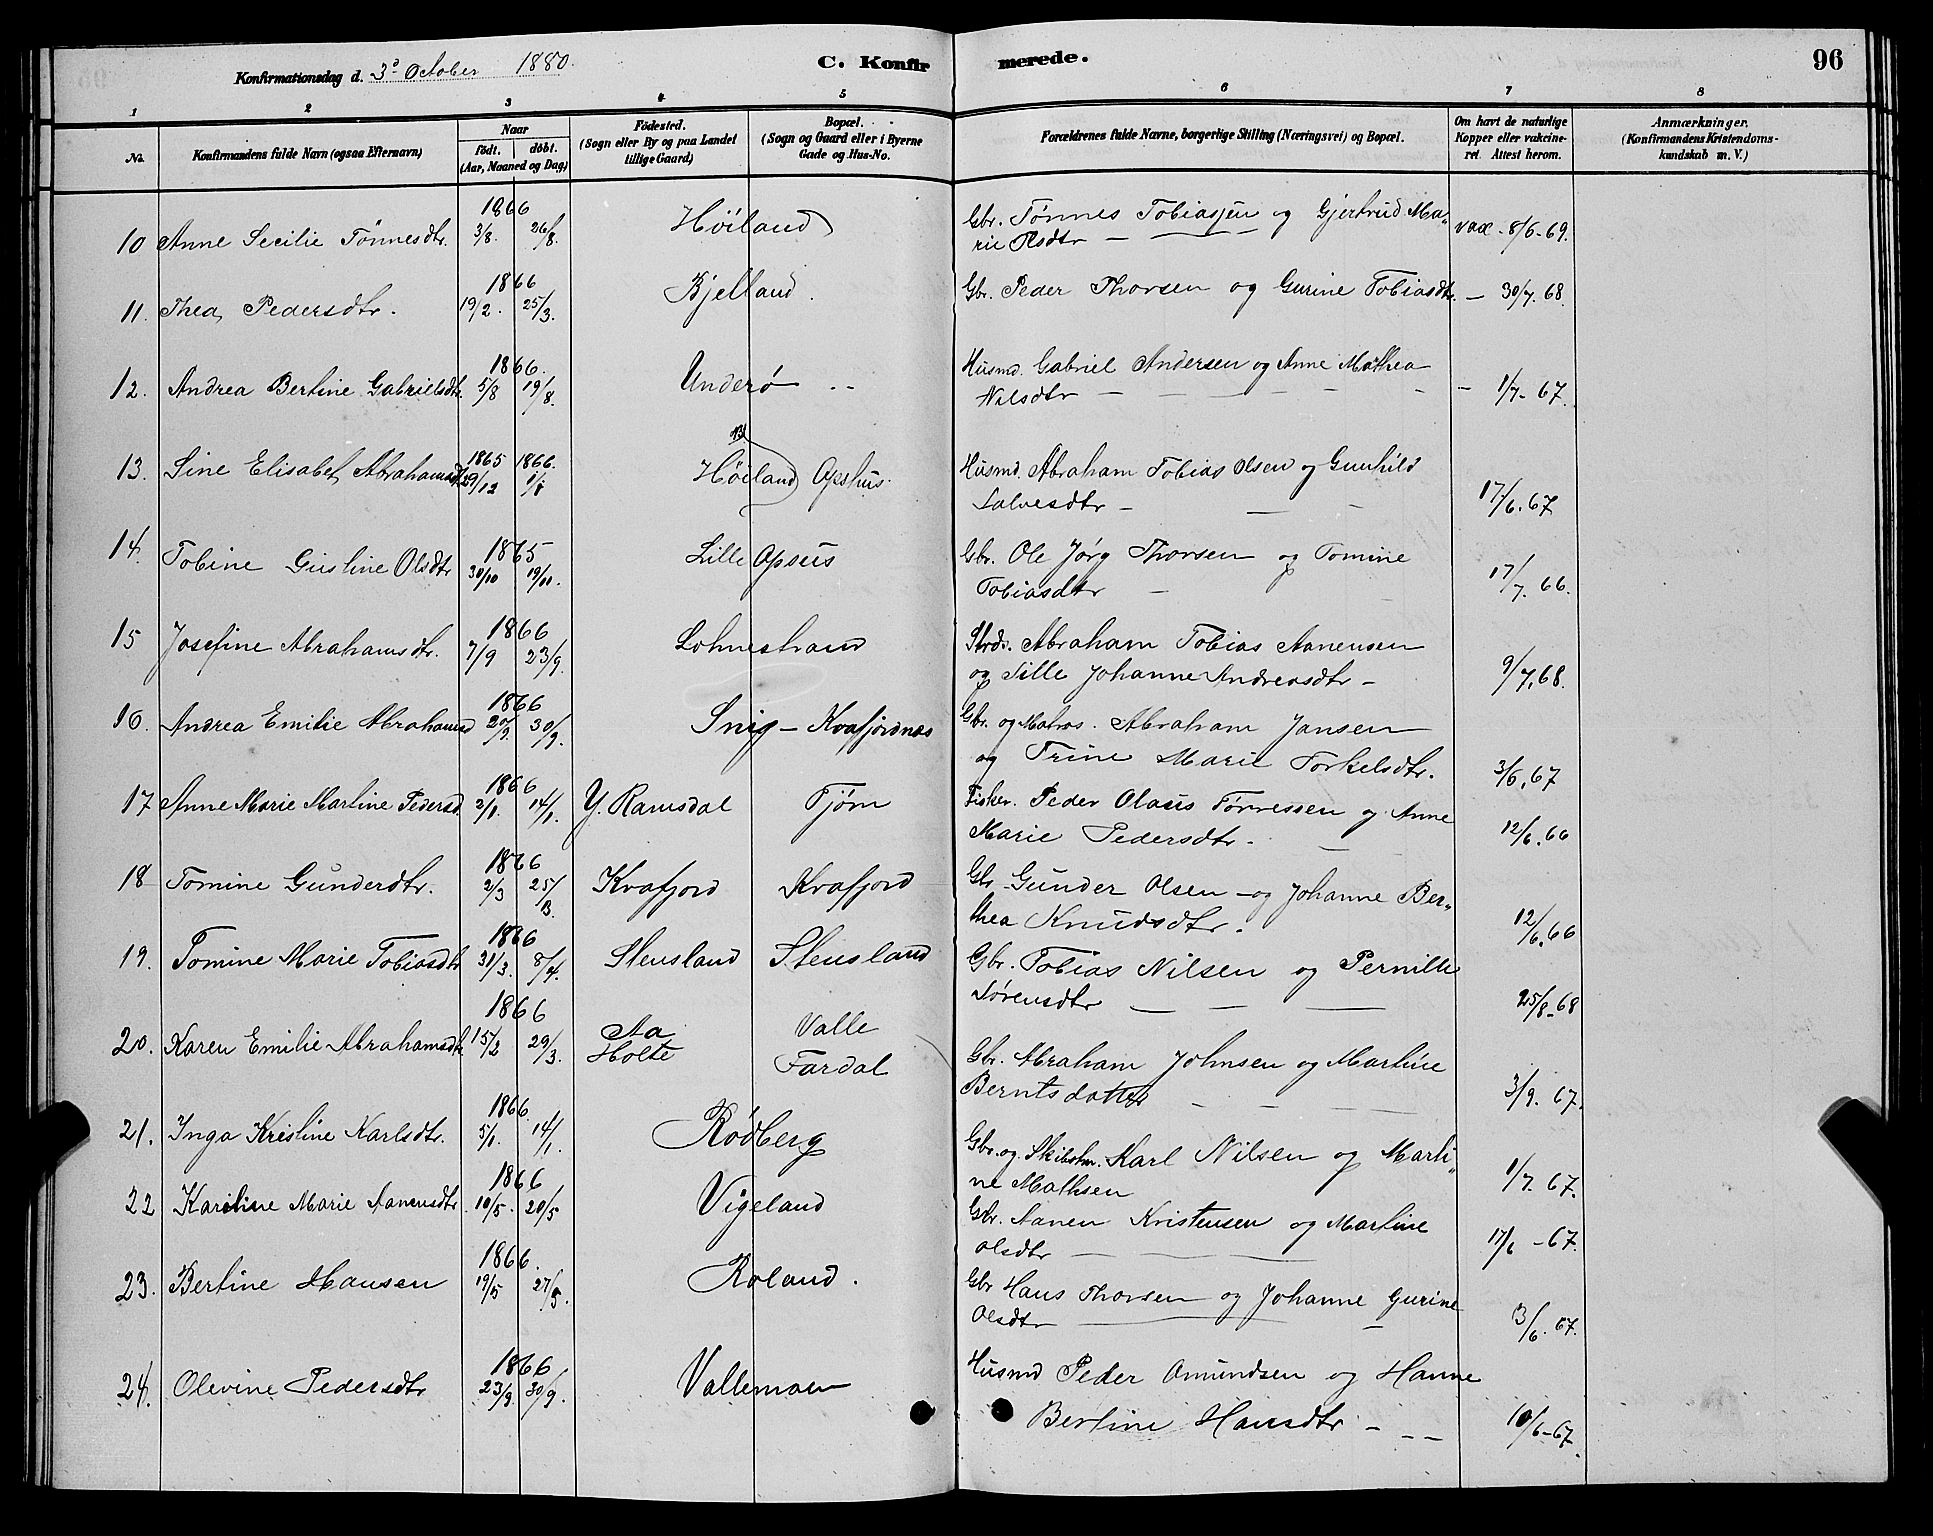 Konfirmationsdag d. 3º October 1880.
C. Konfirmerede.
96
1 2 3 4 5 6 7 8
No.
Konfirmandens fulde Navn (ogsaa Efternavn)
Naar
födt. döbt.
(Aar, Maaned og Dag)
Födested.
(Sogn eller By og paa Landet
tillige Gaard)
Bopæl.
(Sogn og Gaard eller i Byerne
Gade og Hus-No.
Forældrenes fulde Navne, borgerlige Stilling (Næringsvei) og Bopæl.
Om havt de naturlige
Kopper eller vakcine-
ret. Attest herom.
Anmærkninger.
(Konfirmandens Kristendoms-
kundskab m. V.)
1866
10 Anne Secilie Tönnesdtr. 3/8. 26/8. Höiland Gbr. Tönnes Tobiassen og Gjertrud Ma„
rie Olsdtr — vax - 8/6-69.
1866
11. Thea Pedersdtr. 19/2. 25/3. Bjelland. Gbr. Peder Thorsen og Gurine Tobiasdtr. — 30/7. 68.
1866.
12. Andrea Bertine Gabrielsdtr. 5/8 19/8. Underö Husmd. Gabriel Andersen og Anne Mathea
Nilsdtr — 1/7-67.
1865 1866.
13. Sine Elisabet Abrahamsdtr 29/12 1/1 Höiland Opshus. Husmd. Abraham Tobias Olsen og Gunhild
Salvesdtr — 17/6.67
1865
14. Tobine Gustine Olsdtr 30/10 19/11. Lille Opsus Gbr. Ole Jörg Thorsen og Tomine
Tobiasdtr — 17/7. 66.
1866
15 Josefine Abrahamsdtr. 7/9 23/9. Lohnestrand Strds. Abraham Tobias Aanensen
og Sille Johanne Andreasdtr — 9/7.68.
1866
16. Andrea Emilie Abrahamsd 20/9. 30/9. Snig — Kvafjordnes Gbr. og Matros. Abraham Jansen
og Trine Marie Torkelsdtr. 3/6.67
1866
17 Anne Marie Martine Pedersd. 2/1. 14/1. Y. Ramsdal Tjöm Fisker. Peder Olaus Tönnessen og Anne
Marie Pedersdtr. — 12/6.66
1866
18 Tomine Gunderdtr. 2/3 25/3. Kvafjord Kvafjord Gbr Gunder Olsen — og Johanne Ber„
thea Knudsdtr. 12/6.66
1866
19. Tomine Marie Tobiasdtr 31/3. 8/4. Stensland Stensland Gbr. Tobias Nilsen og Pernille
Sörensdtr — 25/8-68
1866
20. Karen Emilie Abrahamsdtr 15/2 29/3. Aa Valle
Holte Fardal Gbr. Abraham Johnsen og Martine
Berntsdatter — 3/9. 67.
1866.
21. Inga Kristine Karlsdtr. 5/1. 14/1. Rödberg Gbr. og Skibstm. Karl Nilsen og Marti„
ne Mathsen 1/7. 67.
1866
22 Karoline Marie Aanensdtr. 10/5. 20/5 Vigeland Gbr. Aanen Kristensen og Martine
Olsdtr — 17/6 - 67.
1866.
23. Bertine Hansen 19/5 27/5. Roland. Gbr Hans Thorsen og Johanne Gurine
Olsdtr — 13/6. 67.
1866
24. Olevine Pedersdtr 23/9 30/9. Vallemoen Husmd Peder Omundsen og Hanne
Bertine Hansdtr — 10/6-67